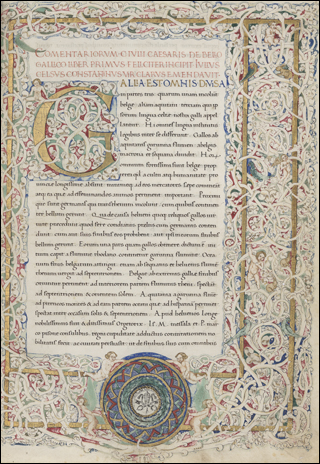 COMENTARIORUM·C·IVLII CAESARIS·DE·BELO
GALLICO LIBER PRIMVS FELICITER INCIPIT·IVLIVS
CELSVS CONSTANTINVS
GALLIA EST OMNIS DIVISA
in partes tres quarum unam incolunt
belgae: aliam aquitani: tertiam qui ip
sorum lingua celtae nostra galli appel
lantur. Hi omnes lingua institutis
legibus inter se differunt. Gallos ab
aquitanis garunna flumen: a belgis
matrona et sequana diuidit. Horum
omnium fortissimi sunt belgae: prop
terea quod a cultu atque humanitate pro
uinciae longissime absunt: minimeque ad eos mercatores saepe commeant
atque ea quae ad effeminandos animos pertinent important. Proxi
mique sunt germanis qui trans rhenum incolunt: cum quibus continen
ter bellum gerunt. Qua de causa heluetii quoque reliquos gallos uir
tute praecedunt: quod fere cotidianis praeliis cum germanis conten
dunt: cum aut suis finibus eos prohibent: aut ipsi in eorum finibus
bellum gerunt. Eorum una pars quam gallos obtinere dictum est ini
tium capit a flumine rhodano: continetur garunna flumine: Ocea
no: finibus belgarum: attingit etiam ab sequanis et heluetiis flumen
rhenum: uergit ad septentriones. Belgae ab extremis galliae finibus
oriuntur: pertinent ad inferiorem partem fluminis rheni: spectant
ad septentriones & orientem solem. Aquitania a garunna flumine
ad pireneos montes & ad eam partem oceani quae ad hispaniam pertinet:
spectat inter occasum solis & septentriones. Apud heluetios longe
nobilissimus fuit & ditissimus Orgetorix. Is M. messala et P. M.
pisone consulibus: regni cupiditate adductus coniurationem no
bilitatis fecit: ac ciuitati persuasit: ut de finibus suis cum omnibus